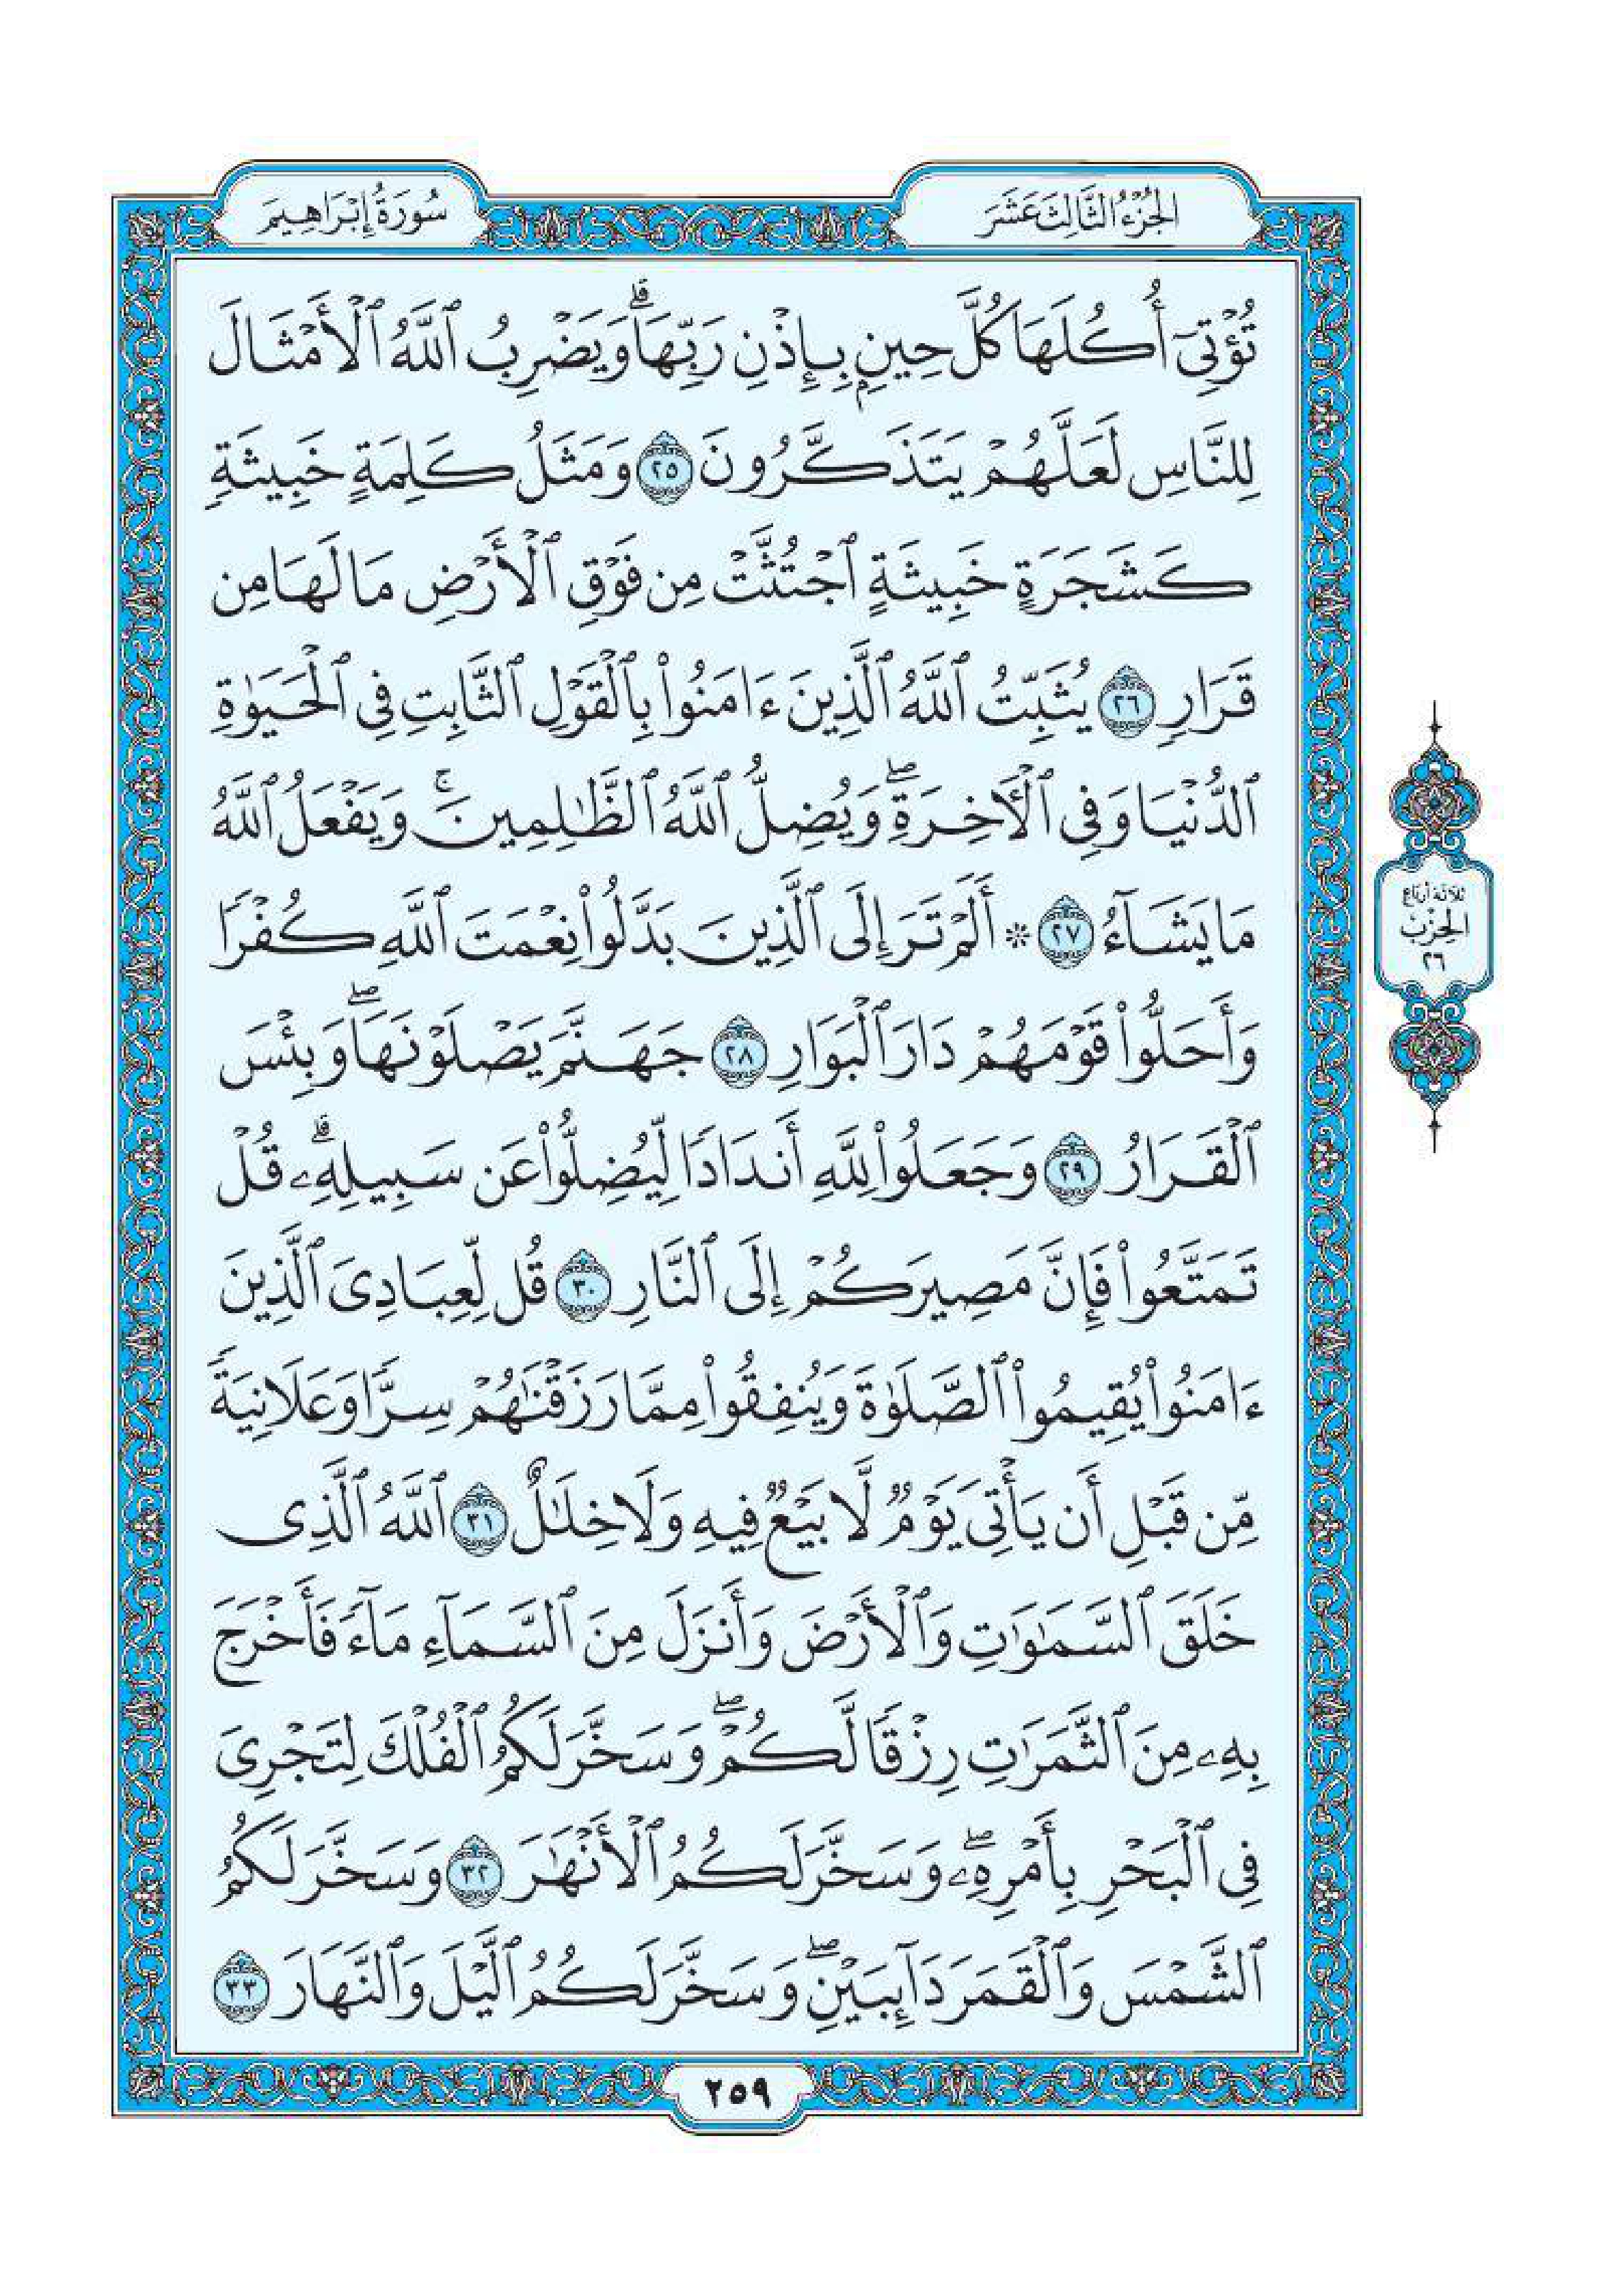 الجزء الثالث عشر
سورة إبراهيم
تُؤْتِىٓ أُكُلَهَا كُلَّ حِينٍۭ بِإِذْنِ رَبِّهَاۗ وَيَضْرِبُ ٱللَّهُ ٱلْأَمْثَالَ
لِلنَّاسِ لَعَلَّهُمْ يَتَذَكَّرُونَ ٢٥ وَمَثَلُ كَلِمَةٍ خَبِيثَةٍ
كَشَجَرَةٍ خَبِيثَةٍ ٱجْتُثَّتْ مِن فَوْقِ ٱلْأَرْضِ مَا لَهَا مِن
قَرَارٍ ٢٦ يُثَبِّتُ ٱللَّهُ ٱلَّذِينَ ءَامَنُوا۟ بِٱلْقَوْلِ ٱلثَّابِتِ فِى ٱلْحَيَوٰةِ
ٱلدُّنْيَا وَفِى ٱلْءَاخِرَةِۖ وَيُضِلُّ ٱللَّهُ ٱلظَّٰلِمِينَۚ وَيَفْعَلُ ٱللَّهُ
مَا يَشَآءُ ٢٧ * أَلَمْ تَرَ إِلَى ٱلَّذِينَ بَدَّلُوا۟ نِعْمَتَ ٱللَّهِ كُفْرًا
وَأَحَلُّوا۟ قَوْمَهُمْ دَارَ ٱلْبَوَارِ ٢٨ جَهَنَّمَ يَصْلَوْنَهَاۖ وَبِئْسَ
ٱلْقَرَارُ ٢٩ وَجَعَلُوا۟ لِلَّهِ أَندَادًا لِّيُضِلُّوا۟ عَن سَبِيلِهِۦۗ قُلْ
تَمَتَّعُوا۟ فَإِنَّ مَصِيرَكُمْ إِلَى ٱلنَّارِ ٣٠ قُل لِّعِبَادِىَ ٱلَّذِينَ
ءَامَنُوا۟ يُقِيمُوا۟ ٱلصَّلَوٰةَ وَيُنفِقُوا۟ مِمَّا رَزَقْنَٰهُمْ سِرًّا وَعَلَانِيَةً
مِّن قَبْلِ أَن يَأْتِىَ يَوْمٌ لَّا بَيْعٌ فِيهِ وَلَا خِلَٰلٌ ٣١ ٱللَّهُ ٱلَّذِى
خَلَقَ ٱلسَّمَٰوَٰتِ وَٱلْأَرْضَ وَأَنزَلَ مِنَ ٱلسَّمَآءِ مَآءً فَأَخْرَجَ
بِهِۦ مِنَ ٱلثَّمَرَٰتِ رِزْقًا لَّكُمْۖ وَسَخَّرَ لَكُمُ ٱلْفُلْكَ لِتَجْرِىَ
فِى ٱلْبَحْرِ بِأَمْرِهِۦۖ وَسَخَّرَ لَكُمُ ٱلْأَنْهَٰرَ ٣٢ وَسَخَّرَ لَكُمُ
ٱلشَّمْسَ وَٱلْقَمَرَ دَآئِبَيْنِۖ وَسَخَّرَ لَكُمُ ٱلَّيْلَ وَٱلنَّهَارَ ٣٣
ثلاثة أرباع
الحزب
٢٦
٢٥٩